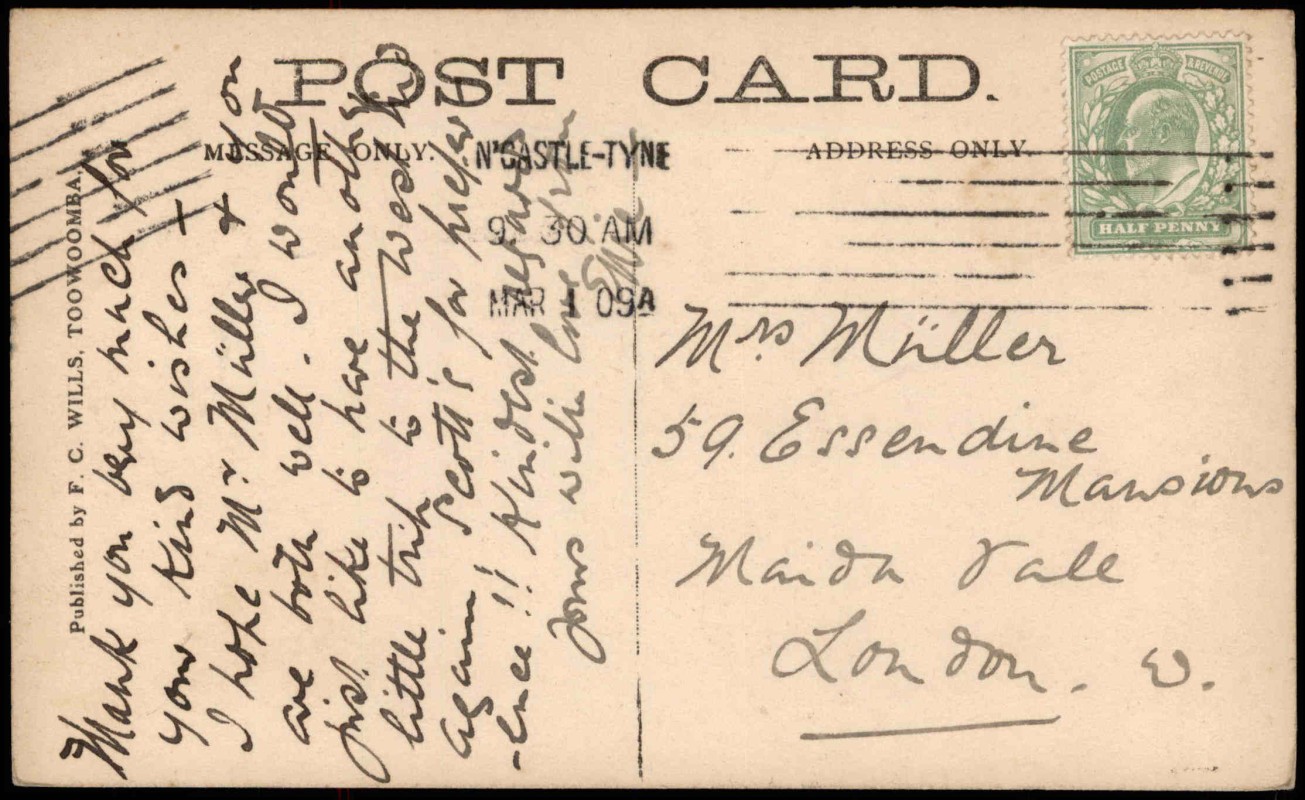 POST CARD.
MESSAGE ONLY.
ADDRESS ONLY.
Published by F. C. WILLS, TOOWOOMBA.
POSTAGE & REVENUE
HALF PENNY
N'CASTLE-TYNE
9. 30 AM
MAR 1 09
Thank you very much for
your kind wishes —
I hope Mr Müller & you
are both well. I would
just like to have another
little trip to the West Ind
again Scott's for prefer
-ence!! Kindest regards
Yours with love from
Effie
Mrs Müller
59. Essendine
Mansions
Maida Vale
London. W.